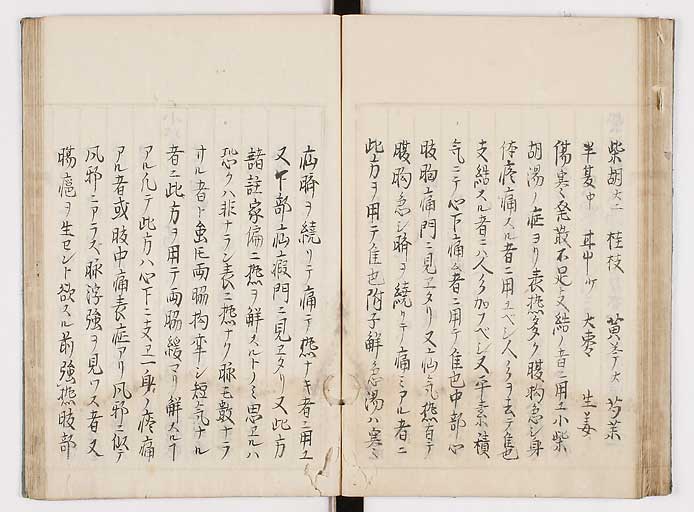 柴胡大 桂枝 黄芩大 芍薬
半夏中 甘中 大棗 生姜
傷寒発散不足支結ノ者ニ用ユ小柴
胡湯ノ症ヨリ表熱多ク腹拘急シ身
疼痛スル者ニ用ユベシ人参ヲ去テ佳也
支結スル者ニハ人参加フベシ又平素積
気ニテ心下痛ム者ニ用テ佳也中部心
腹痛門ニ見ヱタリ又疝気熱有テ
腹拘急シ臍ヲ繞リテ痛ミアル者ニ
此方ヲ用テ佳也附子解急湯ハ寒ミ
疝臍ヲ繞リテ痛テ熱ナキ者ニ用ユ
又下部疝瘕門ニ見ヱタリ又此方
諸註家偏ニ熱ヲ解スルトノミ思ヱルハ
恐クハ非ナラン表ニ熱ナク脉モ数ナラ
サル者ト雖モ両脇拘牽シ短気ナル
者ニ此方ヲ用テ両脇緩マリ解スル
アル凡テ此方ハ心下ニ支ヱ身疼痛
アル者或肢中痛表症アリ風邪ニ似テ
風邪ニアラス脉浮強ヲ見ハス者又
瘍ヲ生セント欲スル前強熱肢部